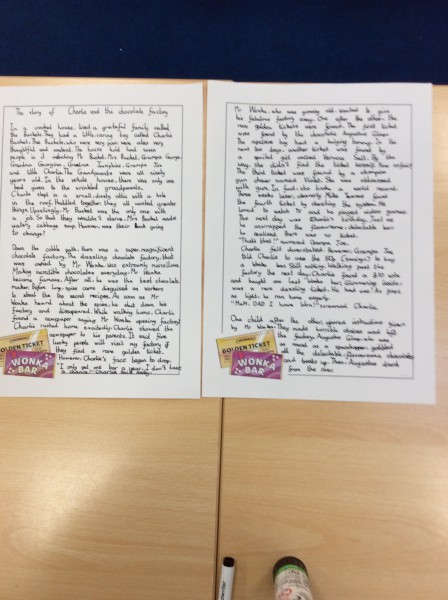 The story of Charlie and the chocolate factory
In a crooked house, lived a grateful family called
the Buckets. They had a little, caring boy called Charlie
Bucket. The Buckets, who were very poor, were also very
thoughtful and contend. The house held had seven
people in it including Mr Bucket, Mrs Bucket, Grandpa George,
Grandma Georgina, Grandma Josephine, Grandpa Joe
and little Charlie. The Grandparents were all ninety
years old. In the whole house, there was only one
bed given to the wrinkled grandparents.
Charlie slept in a small, dusty attic with a hole
in the roof. Huddled together, they all wanted greater
things. Upsettingly, Mr Bucket was the only one with
a job. So that they wouldn't starve, Mrs Bucket made
watery cabbage soup. However, was their luck going
to change?
Down the cobble path, there was a super, magnificent
chocolate factory. The dazzling chocolate factory, that
was owned by Mr Wonka, was extremely marvellous.
Making incredible chocolates everyday, Mr Wonka
became famous. After all, he was the best chocolate
maker. Before long, spies came disguised as workers
to steal the top secret recipes. As soon as Mr
Wonka heard about the spies, he shut down his
factory and disappeared. While walking home, Charlie
found a newspaper saying Mr Wonka opening factory!
Charlie rushed home excitedly. Charlie showed the
newspaper to his parents. It said five
lucky people will visit my factory if
they find a rare golden ticket.
However, Charlie's face began to drop.
"I only get one bar a year. I don't have
a chance" Charlie said sadly.
GOLDEN TICKET
WONKA
BAR
Mr Wonka, who was growing old, wanted to give
his fabulous factory away. One after the other, the
rare golden tickets were found. The first ticket
was found by the chocoholic Augustus Gloop.
The repulsive boy had a bulging tummy. In the
next two days, another ticket was found by
a spoiled girl called Veruca Salt. By the
way, she didn't find the ticket herself. How unfair!
The third ticket was found by a champion
gum chewer named Violet. She was obsessed
with gum. In fact, she broke a world record.
Three weeks later, cleverly Mike Teavee found
the fourth ticket by cracking the system. He
loved to watch TV and he played video games.
The next day was Charlie's birthday. Just as
he unwrapped the flavoursome, delectable bar
he realised there was no ticket.
"That's that!" murmured Grandpa Joe.
Charlie felt devastated. However, Grandpa Joe
told Charlie to use the 10p to buy
a Wonka bar. Still walking past the
factory the next day, Charlie found a £10 note
and bought one last Wonka bar. Glimmering inside
was a rare dazzling ticket. He had won. As fast
as light, he ran home eagerly.
"MUM, DAD I have won!" screamed Charlie.
One child after the other, ignored instructions given
by Mr Wonka. They made horrible choices and left
the factory. Augustus Gloop, who was
as round as a spacehopper, gobbled
all the delectable, flavoursome chocolates
and broke up. Then, Augustus drank
from the river.
GOLDEN TICKET
WONKA
BAR